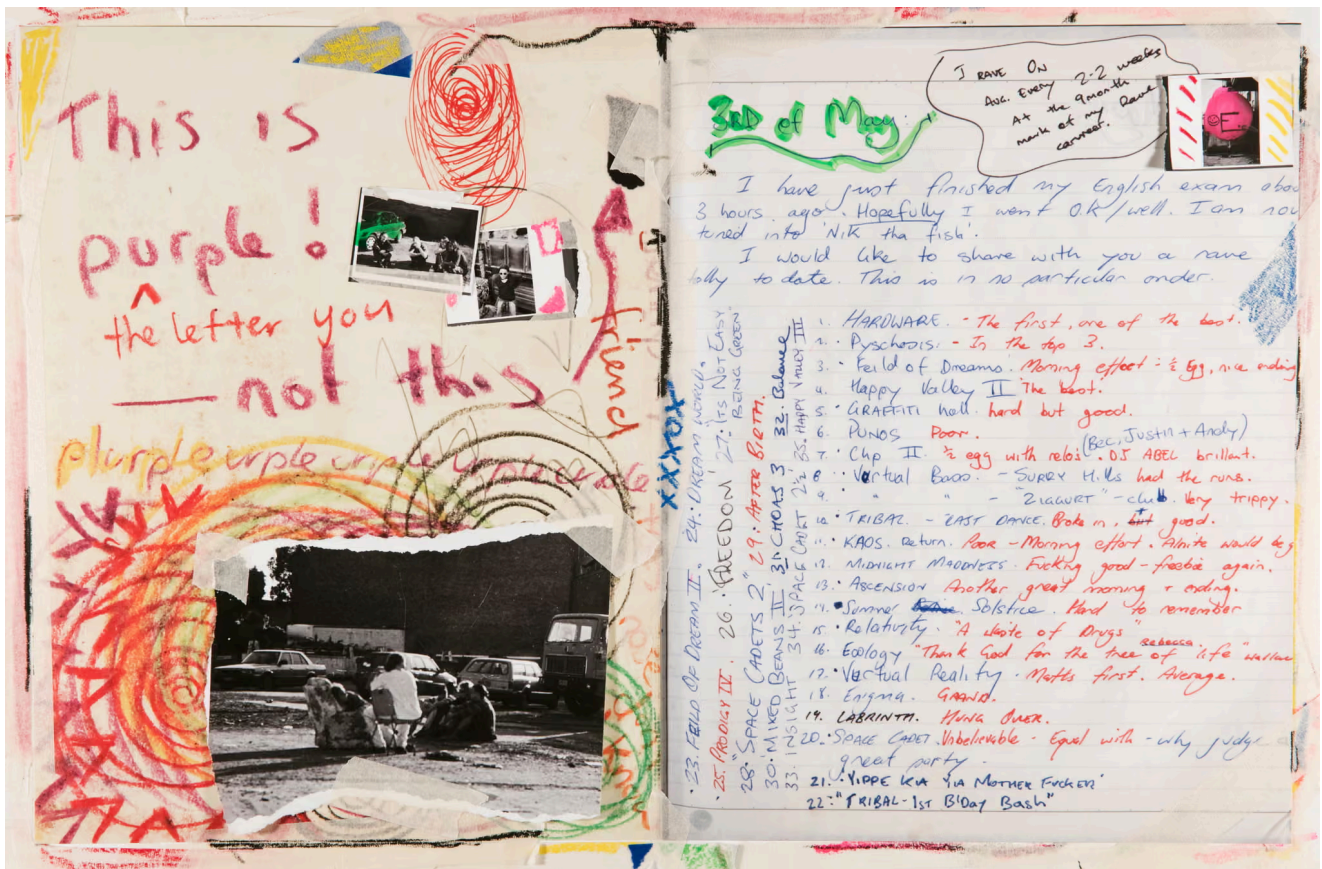 This is
purple!
the letter you
not this
friend
plurple urple urple urple urple
xoxxxx
3RD of May.
I RAVE ON
AVG. EVERY 2-2 weeks
At the 9 month
mark of my Rave
carureer.
E
I have just finished my English exam abou
3 hours ago. Hopefully I went O.K/well. I am now
tuned into 'Nik tha fish'.
I would like to share with you a rave
tolly to date. This is in no particular order.
1. HARDWARE. - The first, one of the best.
2. Pyschosis: - In the top 3.
3. Feild of Dreams. Morning effort - ½ Egg, nice ending
4. Happy Valley II The best.
5. GRAFFITI hall. hard but good.
6. PUNOS Poor.
(Bec, Justin + Andy)
7. Chp II. ½ egg with relos. DJ ABEL brilliant.
8 Vertual Bass - SURRY Hills had the runs.
9. " " - "ZIGGURT" - club. Very trippy.
10. TRIBAL - LAST DANCE. Broke in, it good.
11. KAOS. Return. Poor - Morning effort. Alnite would be g
12. MIDNIGHT MADDNESS. Fucking good - freebie again.
13. ASCENSION Another great morning + ending.
14. Summer Solstice. Hard to remember
15. Relativity. "A Waste of Drugs"
16. Ecology "Thank God for the tree of 'life'" Rebecca wallace
17. Vertual Reality. Maths first. Average.
18. Enigma. GRAND.
19. LABRINTH. HUNG OVER.
20. SPACE CADET. Unbelievable - Equal with - why judge a
great party.
21. 'YIPPE KIA YIA MOTHER FUCKER'
22. "TRIBAL - 1ST B'Day Bash"
23. FEILD OF DREAM II. 24. DREAM WORLD.
25. PRODIGY IV. 26. FREEDOM 27. ITS NOT EASY BEING GREEN
28. "SPACE CADETS 2" 29. AFTER BIRTH.
30. MIXED BEANS II. 31 CHORDS 3 32. Balance
33. INSIGHT 34. SPACE CADET 2½ 35. HAPPY VALLEY III